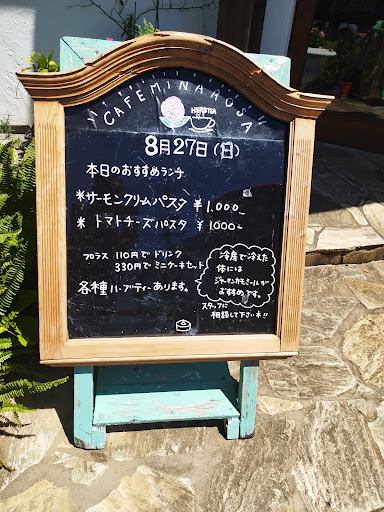 CAFE MINAROSA
HERBTEA
8月27日(日)
本日のおすすめランチ
*サーモンクリームパスタ ¥1,000_
* トマトチーズパスタ ¥1,000_
プラス 110円で ドリンク
330円で ミニケーキセット
各種ハーブティーあります。
冷房で冷えた
体には
ジャーマンカモミールが
おすすめです。
スタッフに
相談して下さいネ!!